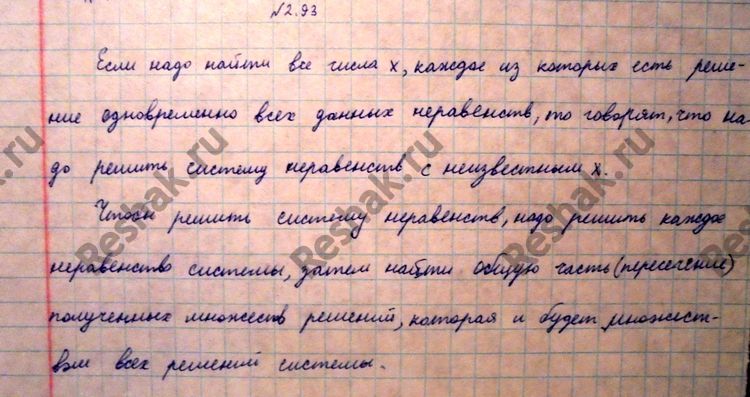 №2.93
Если надо найти все числа x, каждое из которых есть реше-
ние одновременно всех данных неравенств, то говорят, что на-
до решить систему неравенств с неизвестным x.
Чтобы решить систему неравенств, надо решить каждое
неравенство системы, затем найти общую часть (пересечение)
полученных множеств решений, которая и будет множест-
вом всех решений системы.
Reshak.ru
Reshak.ru
Reshak.ru
Reshak.ru